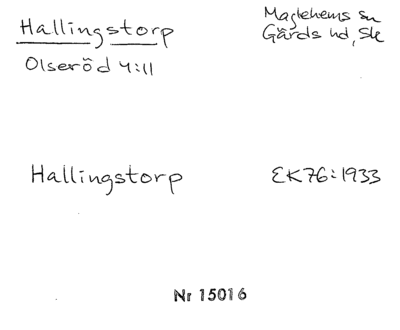 Hallingstorp
Maglehems sn
Gärds hd, Sk
Olseröd 4:11
Hallingstorp
EK76:1933
Nr 15016